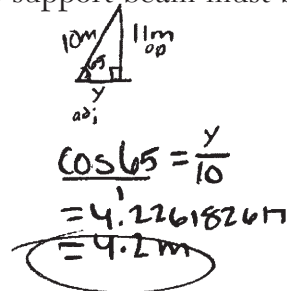 support beam must b
10m
11m
op
65
y
adj
cos65 = y/10
1
= 4.226182617
= 4.2 m